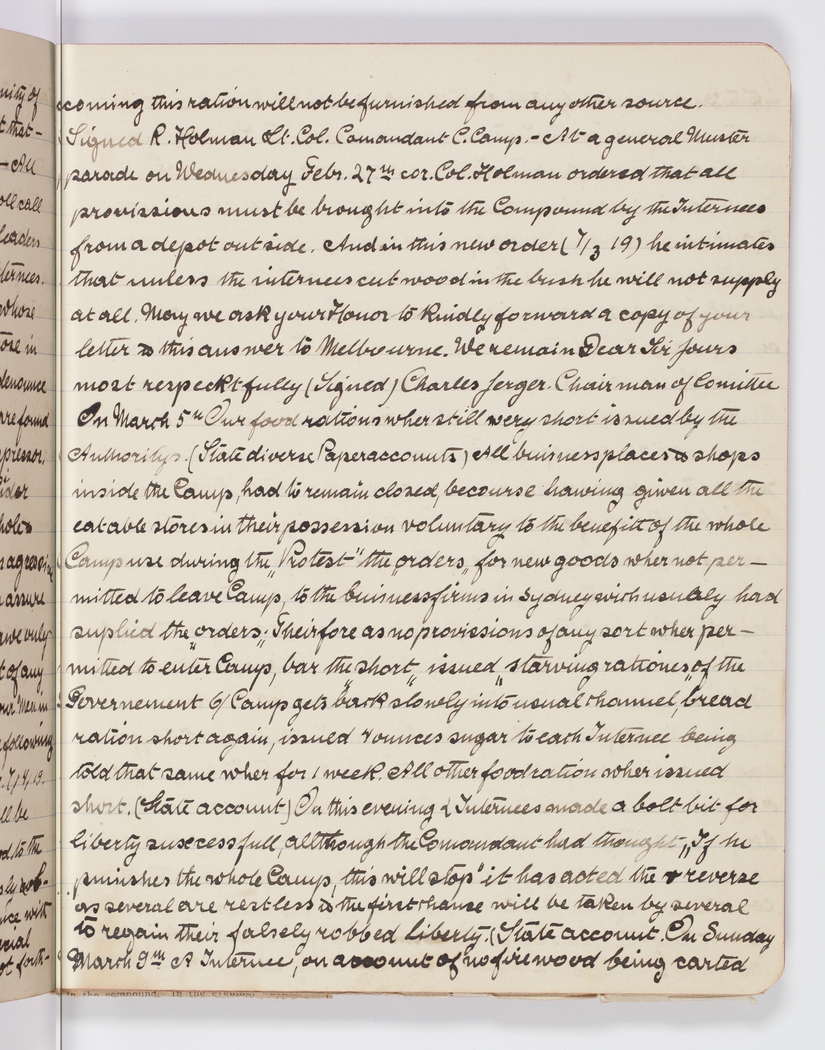 coming this ration will not be furnished from any other source.
Signed R. Holman Lt. Col. Comandant C. Camp. - At a general Muster
parade on Wednesday Febr. 27th cor. Col. Holman ordered that all
provissions must be brought into the Compound by the Internees
from a depot out side. And in this new order (7/3 19) he intimates
that unless the internees cut wood in the bush he will not supply
at all. May we ask your Honor to kindly forward a copy of your
letter & this answer to Melbourne. We remain Dear Sir Jours
most respecktfully (Signed) Charles Jerger. Chairman of Comittee
On March 5th Our food rations wher still wery short issued by the
Authoritys. (State diverse Paperaccounts) All buisinessplaces & shops
inside the Camp, had to remain closed, becourse hawing given all the
eatable stores in their possession voluntary to the benefitt of the whole
Camp use during the „Protest" the „orders„ for new goods wher not per-
mitted to leave Camp, to the buisnessfirms in Sydney wich usually had
suplied the „orders„. Theirfore as no provissions of any sort wher per-
mitted to enter Camp, bar the short„ issued „starving rationes„ of the
Governement 6/ Camp gets back slowly into usual channel, bread
ration short again, issued 4 ounces sugar to each Internee being
told that same wher for 1 week. All other food ration wher issued
short. (State account) On this evening 2 Internees made a bolt bit for
liberty suxcessfull, although the Comandant had thought, „If he
punishes the whole Camp, this will stop" it has acted the reverse
as several are restless & the first chanse will be taken by several
to regain their falsely robbed liberty. (State account. On Sunday
March 9th A Internee, on account of no fire wood being carted